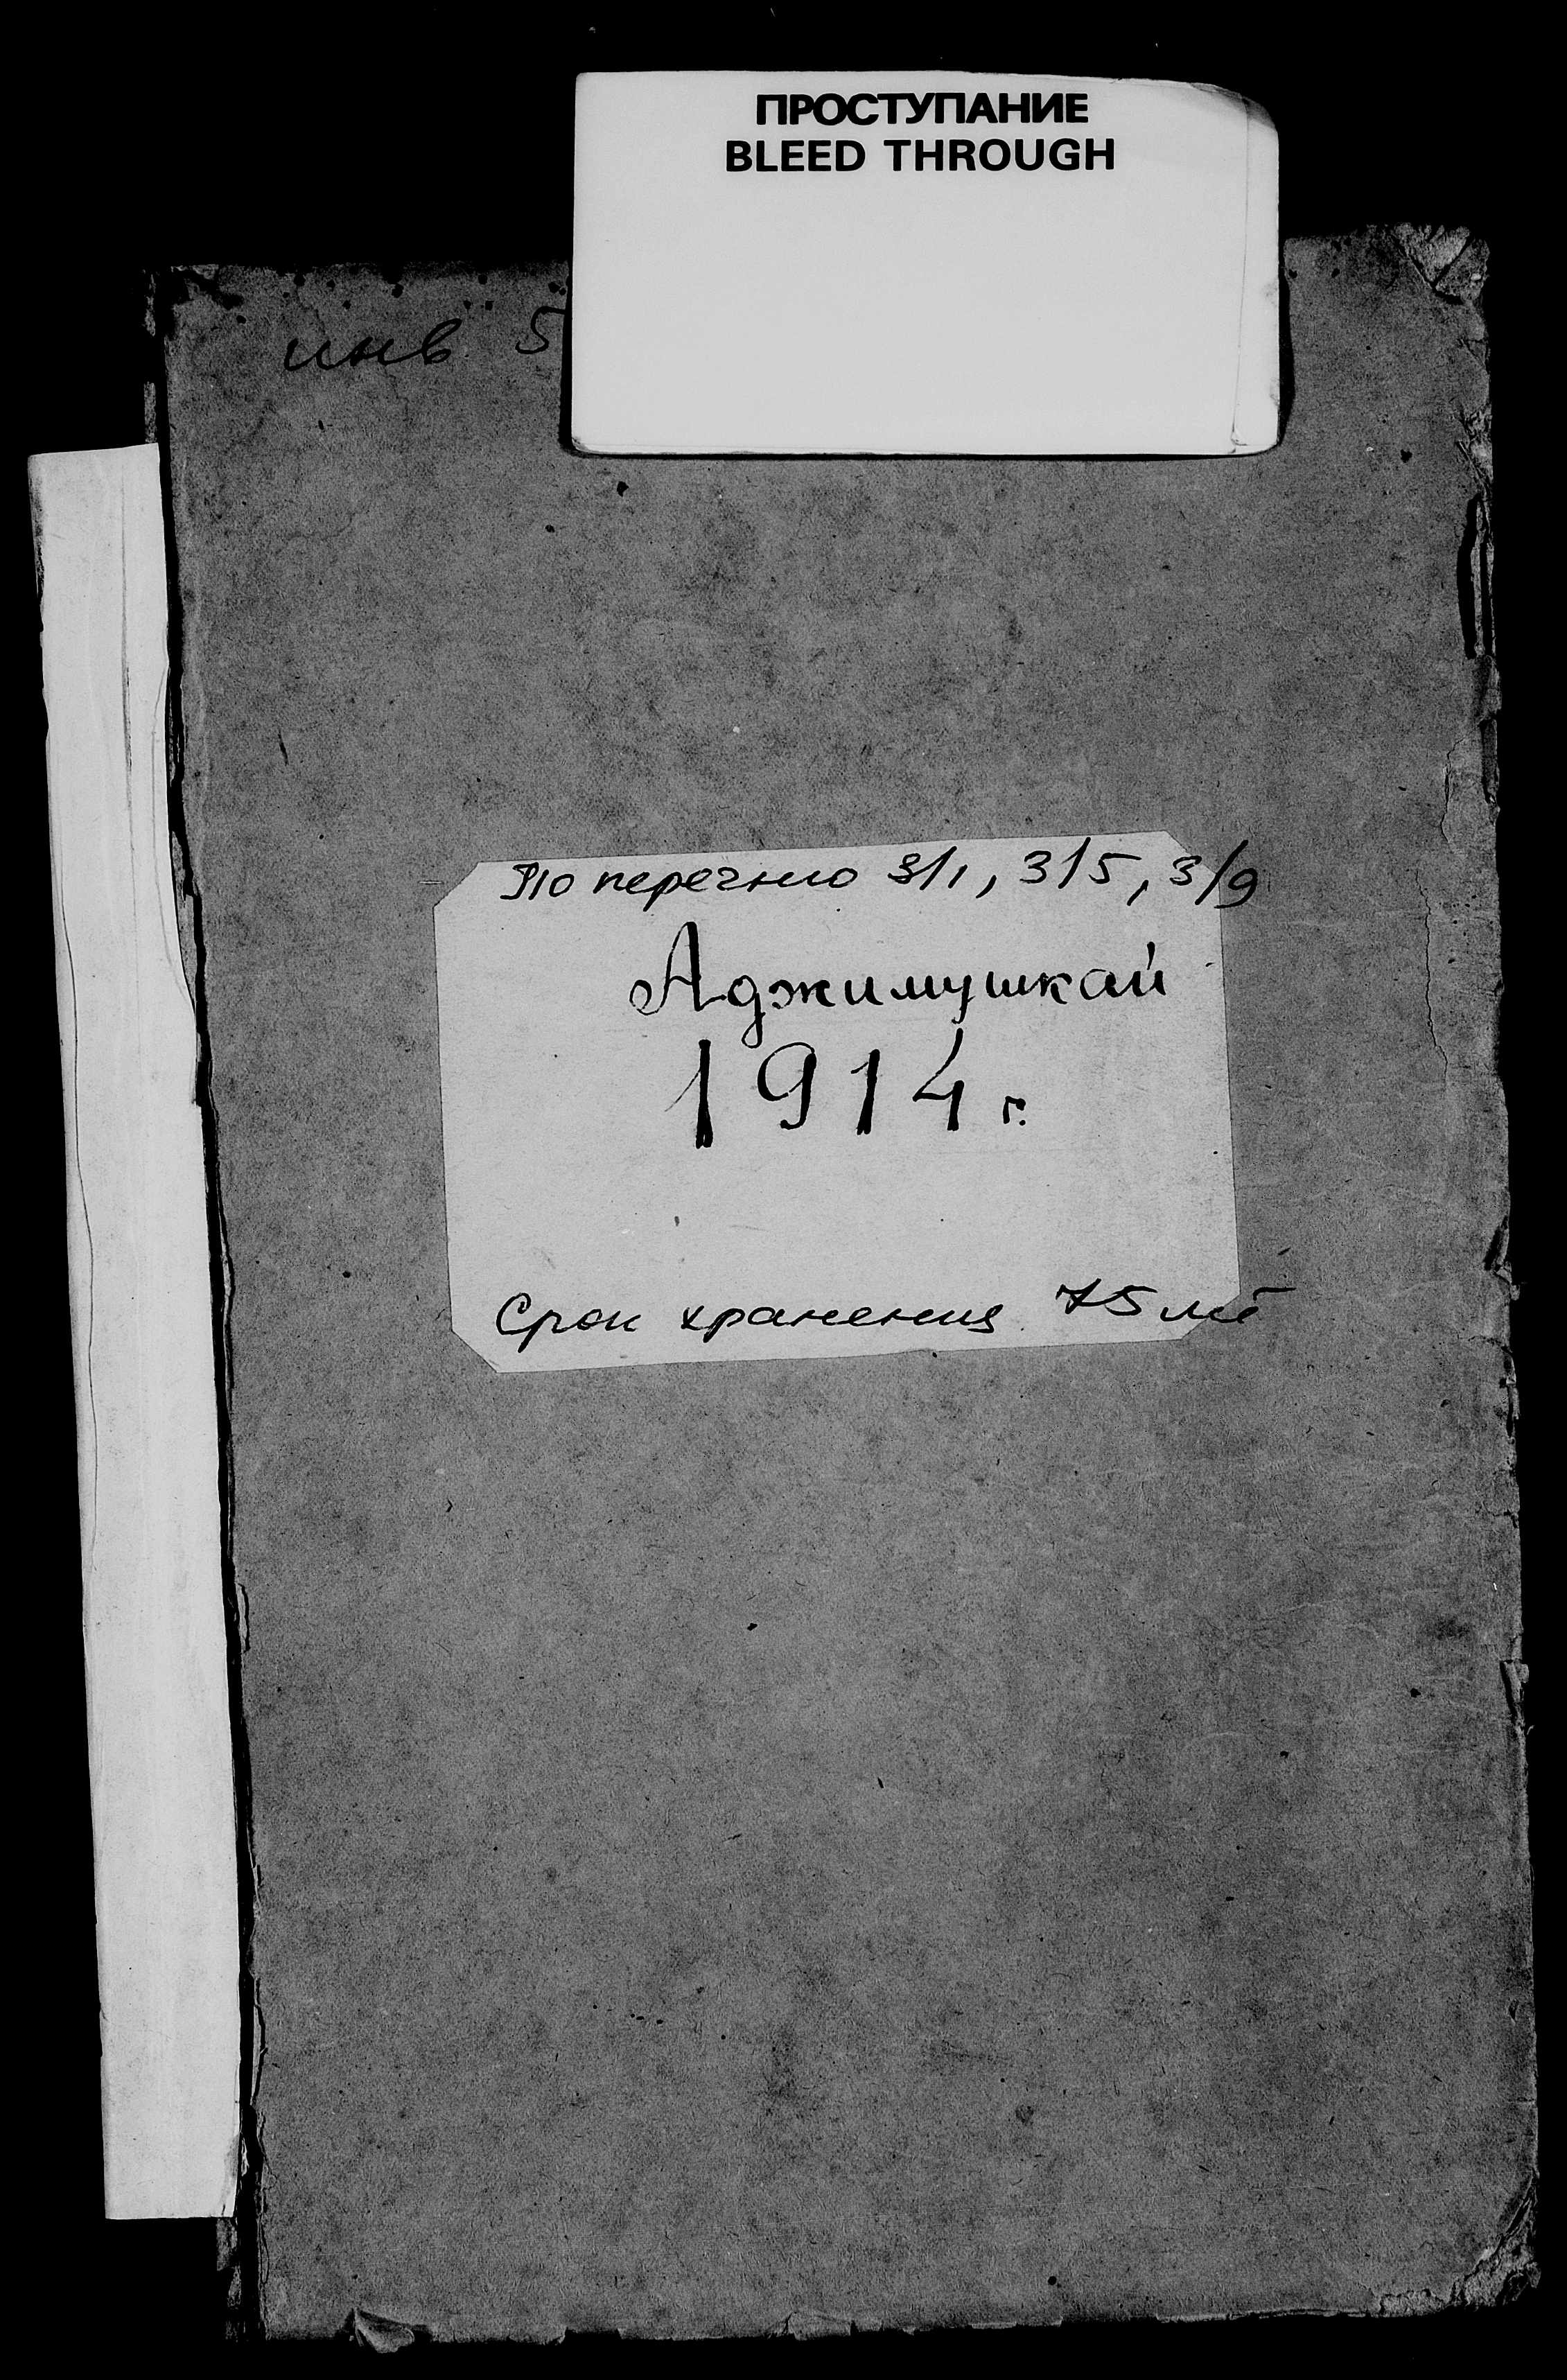 ПРОСТУПАНИЕ
BLEED THROUGH
инв 5
По перечню 3/1, 3/5, 3/9
Аджимушкай
1914 г.
Срок хранения 75 лет